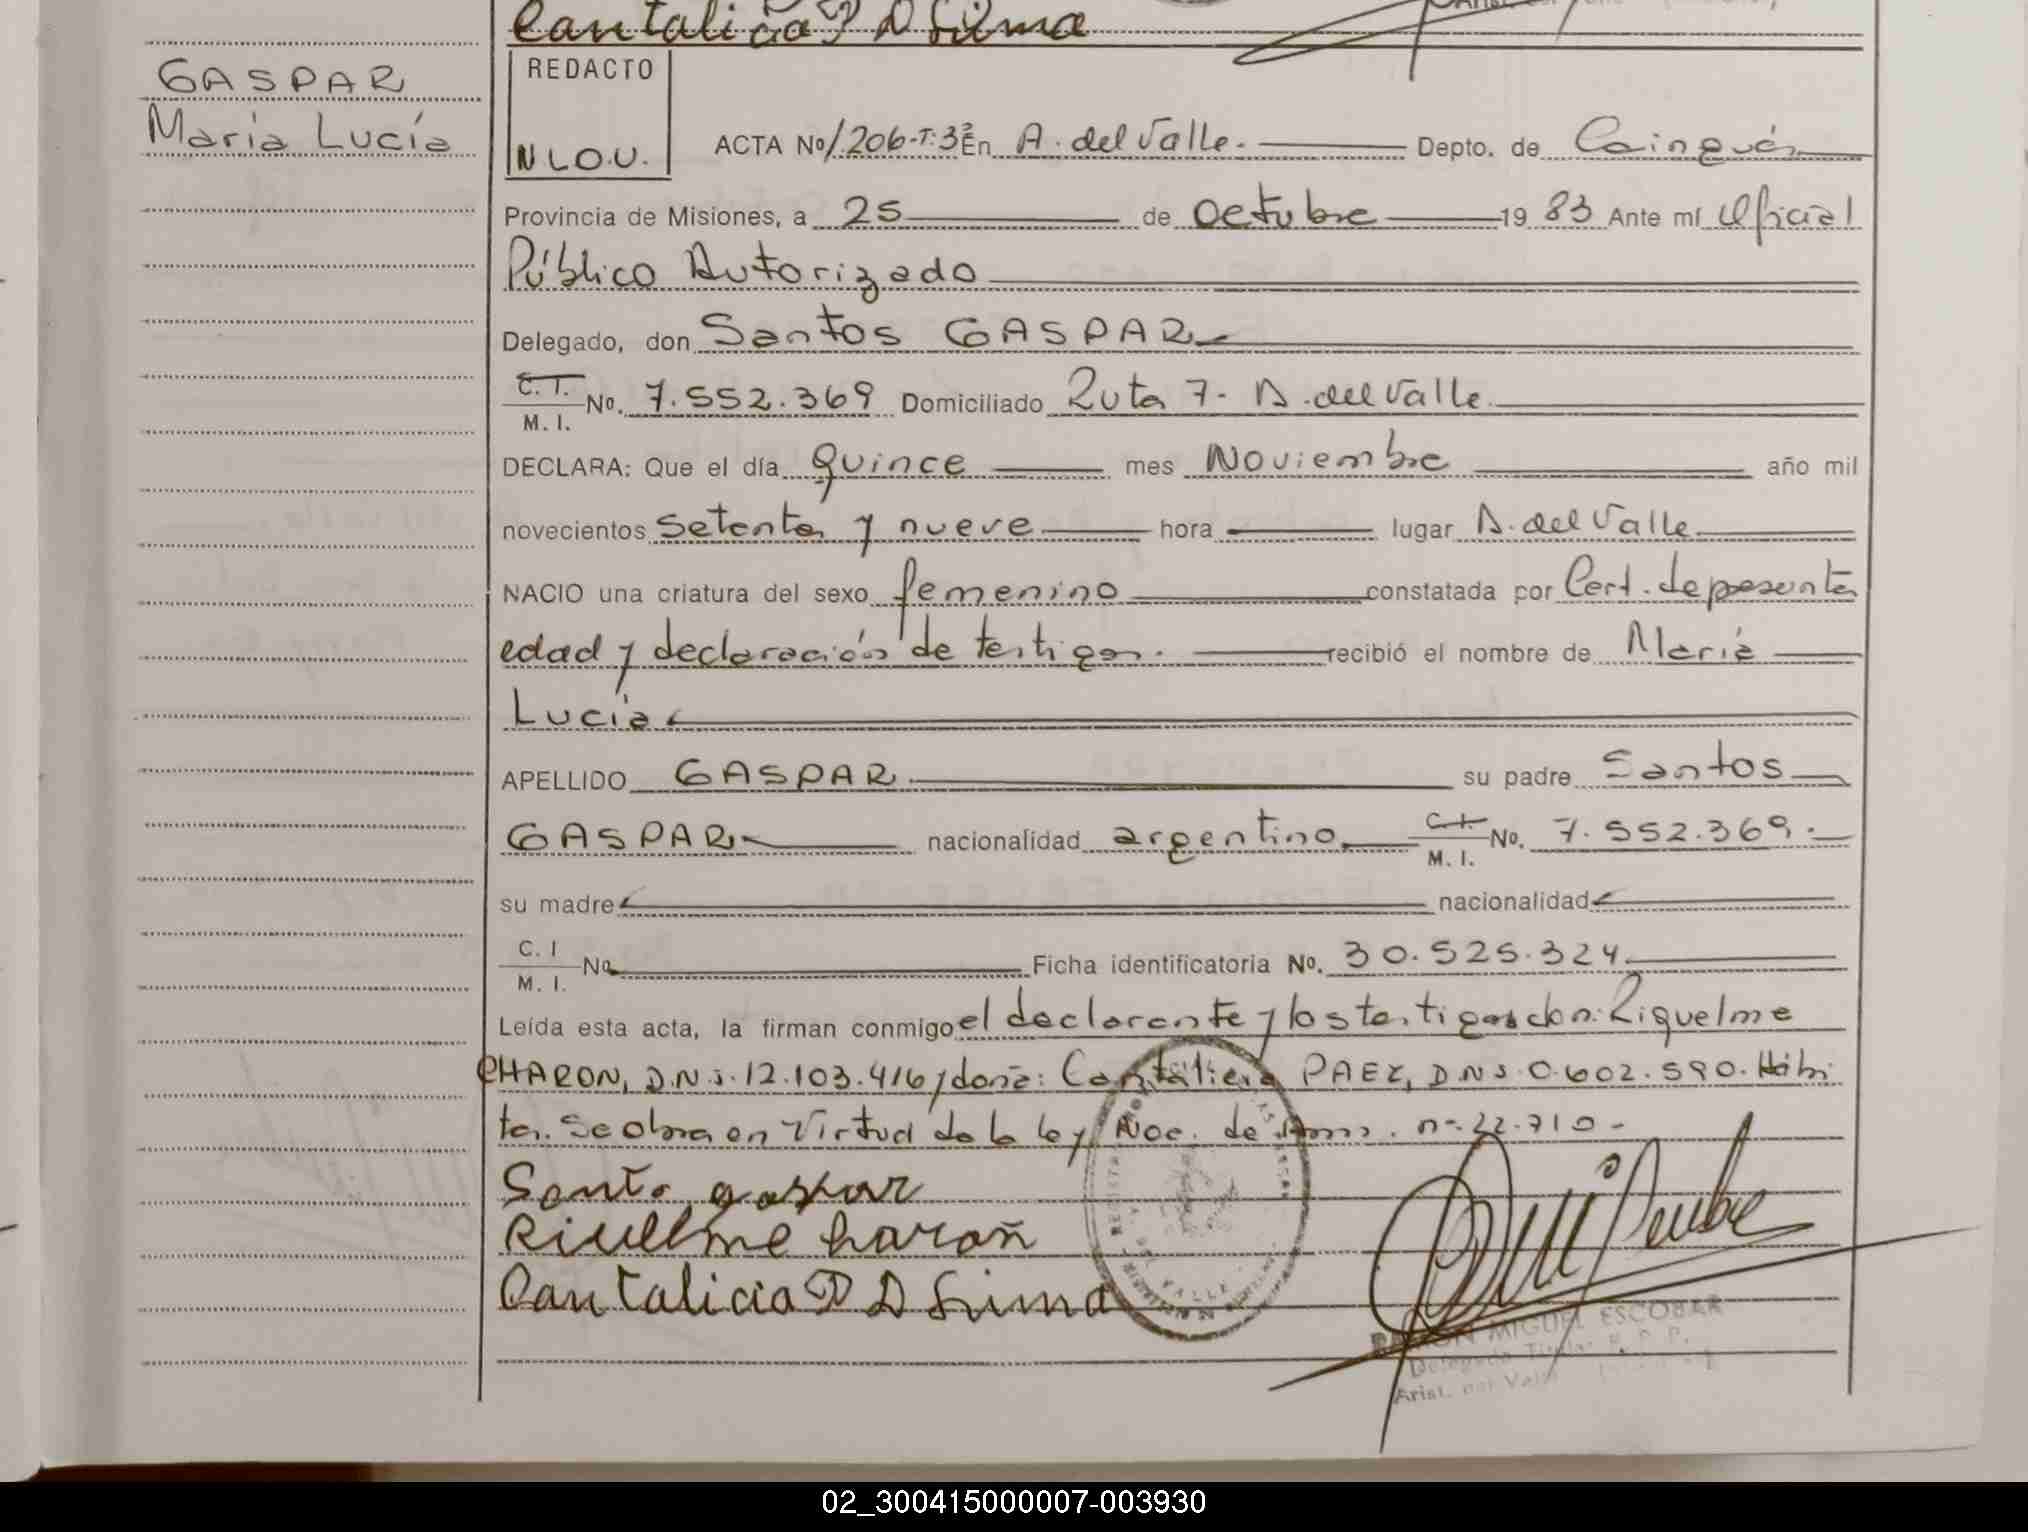 Cantalicia P D Lima
GASPAR
María Lucía
REDACTO
N L O.U.
ACTA Nº 1.206-T:3º En A. del Valle. Depto. de Cainguás
Provincia de Misiones, a 25 de octubre 19 83 Ante mí Oficial
Público Autorizado
Delegado, don Santos GASPAR
C. I. M. I. Nº. 7.552.369 Domiciliado Ruta 7- A. del Valle.
DECLARA: Que el día quince mes Noviembre año mil
novecientos setenta y nueve hora lugar A. del Valle
NACIO una criatura del sexo femenino constatada por Cert. de presunta
edad y declaración de testigos. recibió el nombre de María
Lucía
APELLIDO GASPAR su padre Santos
GASPAR nacionalidad argentino C. I. M. I. Nº. 7.552.369.
su madre nacionalidad
C. I M. I. Nº Ficha identificatoria Nº. 30.525.324.
Leída esta acta, la firman conmigo el declarante y los testigos don: Riquelme
CHARON, D.N.I. 12.103.416 y doña: Cantalicia PAEZ, D.N.I. 0.602.590. Hábi
les. Se obra en Virtud de la ley Nac. de n-. 22.710-
Santo gaspar
Riuelme haroñ
Cantalicia P D Lima
RAMON MIGUEL ESCOBAR
Delegado Titular R. P. P.
Arist. del Valle
02_300415000007-003930